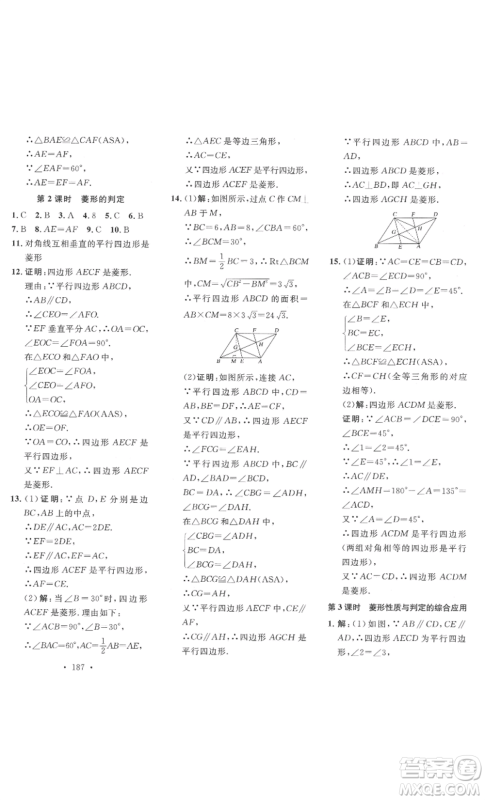 ∴△BAE≌△CAF(ASA),
∴AE=AF,
∵∠EAF=60°,
∴△EAF是等边三角形.
第2课时 菱形的判定
1. C 2. B 3. A 4. 8 5. C 6. B
7. B 8. AE=AF 9. C 10. B
11. 对角线互相垂直的平行四边形是
菱形
12. 证明:四边形AECF是菱形.
理由:∵平行四边形ABCD,
∴AB∥CD,
∴∠ECO=∠FAO,
∵EF垂直平分AC,∴OA=OC,
∠EOC=∠FOA=90°.
在△ECO和△FAO中,
∠EOC=∠FOA,
∠ECO=∠FAO,
OA=OC,
∴△ECO≌△FAO(AAS),
∴OE=OF.
又∵OA=OC,
∴四边形AECF是平行四边形.
又∵EF⊥AC,
∴四边形AECF是菱形.
13. (1)证明:∵点D,E分别是边
BC,AB上的中点,
∴DE∥AC,AC=2DE.
∵EF=2DE,
∴EF∥AC,EF=AC,
∴四边形ACEF是平行四边形,
∴AF=CE.
(2)解:当∠B=30°时,四边形
ACEF是菱形.理由如下:
∵∠ACB=90°,∠B=30°,
∴∠BAC=60°,AC=1/2AB=AE,
∴△AEC是等边三角形,
∴AC=CE.
又∵四边形ACEF是平行四边形,
∴四边形ACEF是菱形.
14. (1)解:如图所示,过点C作CM⊥
AB于M,
∵BC=6,∠CBA=60°,
∴∠BCM=30°,
∴BM=1/2BC=3,∴Rt△BCM
中,CM=√CB²-BM²=3√3,
∴平行四边形ABCD的面积=
AB×CM=8×3√3=24√3.
C F D
G H
B M E A
(2)证明:如图所示,连接AC,
∵平行四边形ABCD中,AE=
CF,AE∥CF,
∴四边形AECF是平行四边形,
∴AF∥EC,∴∠CGB=∠AHE.
∵AB∥CD,
∴∠CDH=∠EAH.
又∵∠CBG=∠CDH,
∴∠CBG=∠EAH.
在△CBG和△DAH中,
∠CBG=∠DAH,
BC=DA,
∠BCG=∠ADH,
∴△CBG≌△DAH(ASA),
∴BG=AH,∠CGB=∠DHA,
∴∠CGB=∠GAH,
∴CG∥AH,
∴四边形AGCH是平行四边形.
∵平行四边形ABCD中,AB=
AD,
∴平行四边形ABCD是菱形,
∴AC⊥BD,即AC⊥GH,
∴平行四边形AGCH是菱形.
15. (1)证明:∵AC=CE=CB=CD,
∠ACB=∠ECD=90°,
∴∠A=∠B=∠D=∠E=45°.
在△BCF和△ECH中,
∠B=∠E,
BC=EC,
∠BCF=∠ECH,
∴△BCF≌△ECH(ASA),
∴CF=CH(全等三角形的对应
边相等).
(2)解:四边形ACDM是菱形.
证明:∵∠ACB=∠DCE=90°,
∠BCE=45°,
∴∠1=∠2=45°.
∵∠E=45°,
∴∠1=∠E,
∴AC∥DE,
∴∠AMH=180°-∠A=135°
=∠ACD.
又∵∠A=∠D=45°,
∴四边形ACDM是平行四边形
(两组对角相等的四边形是平行
四边形).
∵AC=CD,
∴四边形ACDM是菱形.
第3课时 菱形性质与判定的综合应用
1. 解:(1)如图,∵AB∥CD,CE∥
AD,∴四边形AECD为平行四边
形,∠2=∠3,
• 187 •
答案圈
MXQE.COM